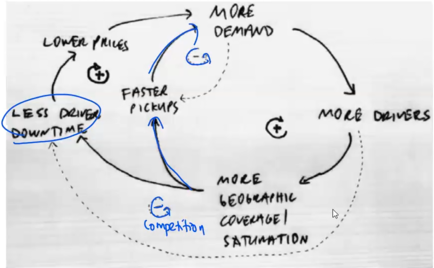 MORE
DEMAND
LOWER PRICES
FASTER
PICKUPS
LESS DRIVER
DOWNTIME
MORE DRIVERS
MORE
GEOGRAPHIC
COVERAGE/
SATURATION
Competition